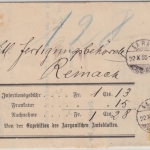 128
Fertigungsbehörde
Reinach
Insertionsgebühr Fr. 1 Cts. 13
Frankatur " " . 15
Nachnahme Fr. 1 Cts. 28
Von der Expedition des Aargauischen Amtsblattes.